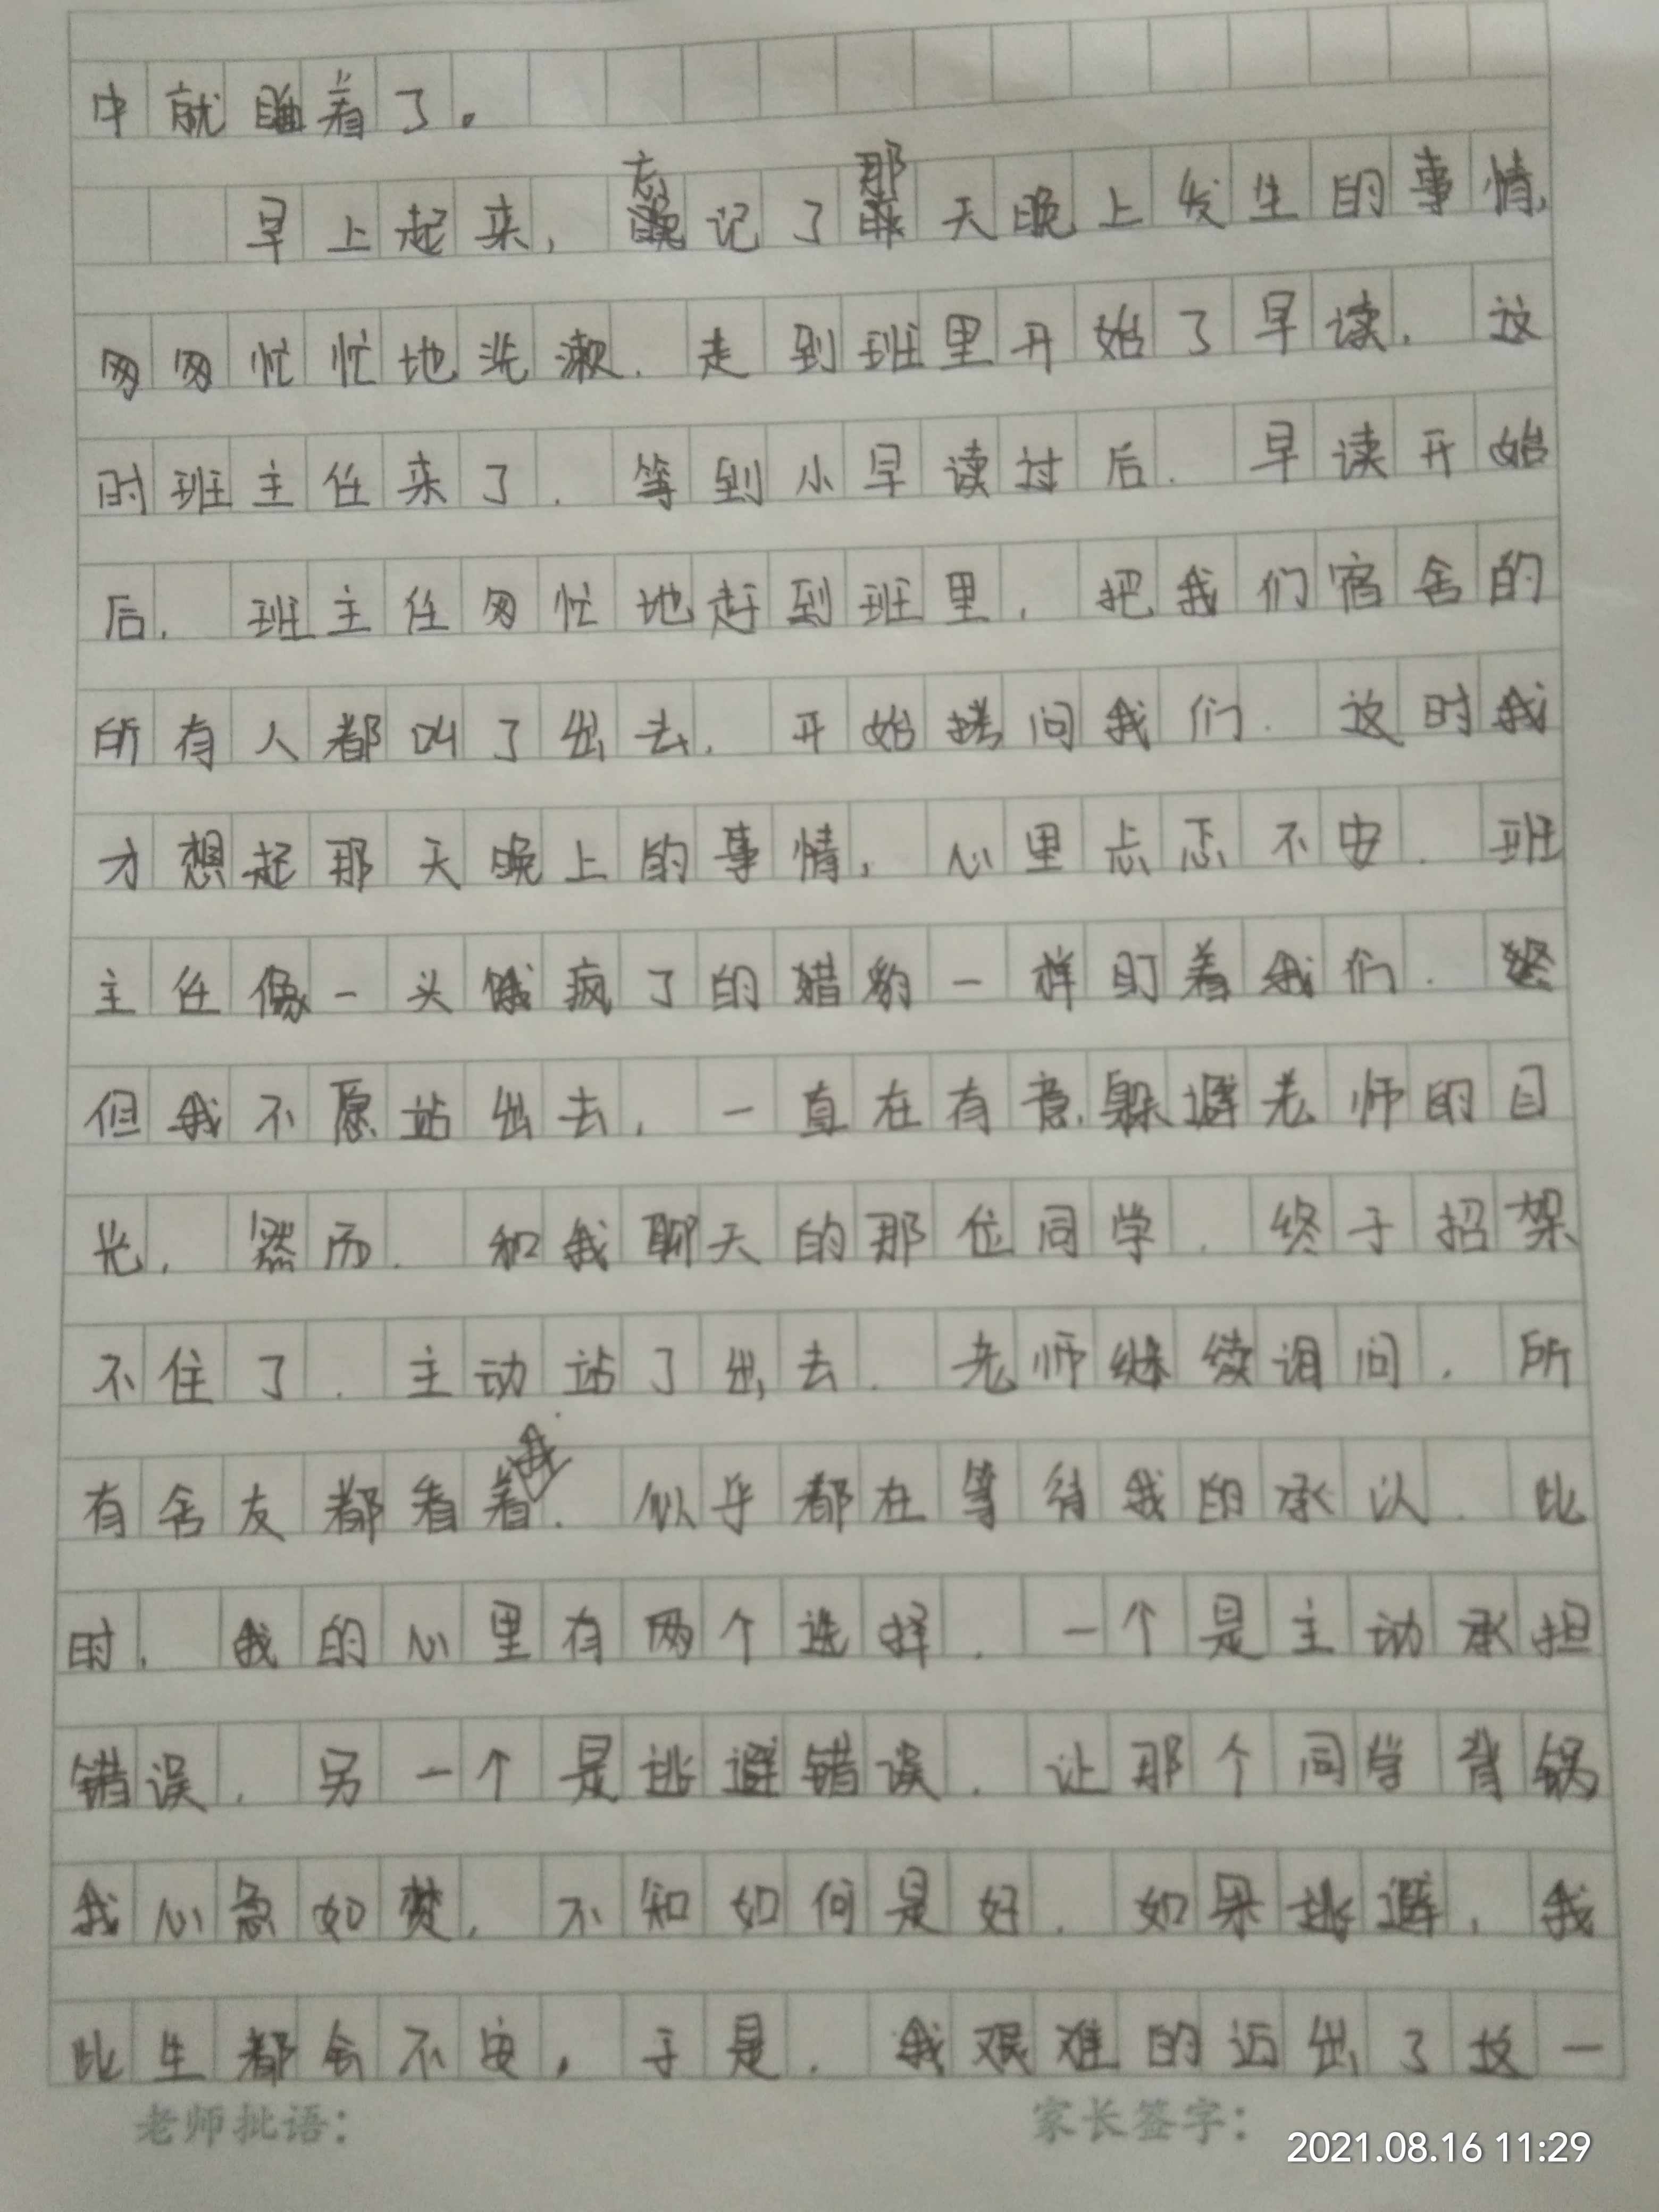 中就睡着了。
早上起来,忘记了那天晚上发生的事情,
匆匆忙忙地洗漱.走到班里开始了早读.这
时班主任来了.等到小早读过后.早读开始
后.班主任匆忙地赶到班里.把我们宿舍的
所有人都叫了出去.开始拷问我们.这时我
才想起那天晚上的事情,心里忐忑不安.班
主任像一头饿疯了的猎豹一样盯着我们.
但我不愿站出去,一直在有意躲避老师的目
光.然而.和我聊天的那位同学.终于招架
不住了.主动站了出去.老师继续询问.所
有舍友都看着我.似乎都在等待我的承认.此
时.我的心里有两个选择.一个是主动承担
错误.另一个是逃避错误.让那个同学背锅
我心急如焚.不知如何是好.如果逃避.我
此生都会不安.于是.我艰难的迈出了这一
老师批语:
家长签字:
2021.08.16 11:29